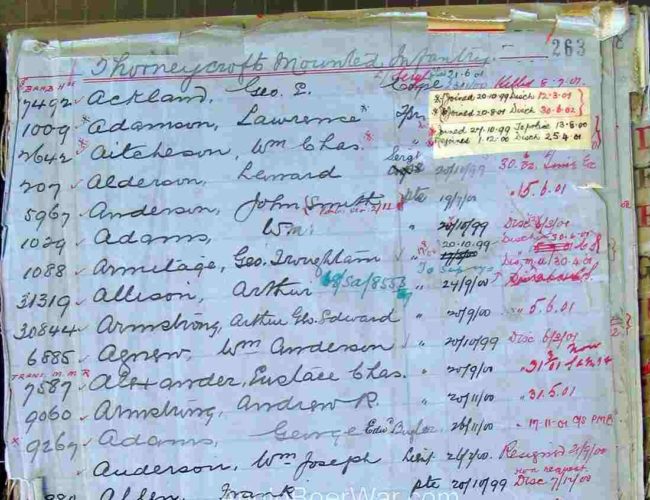 Thorneycroft Mounted Infantry. 263
7492 Ackland, Geo. E. Corpl 21.6.01 Killed
1009 Adamson, Lawrence
Joined 20.10.99 Disch 12.3.01
Joined 20.8.01 Disch 30.6.02
2642 Aitcheson, Wm Chas. Sergt
Joined 27.10.99 To police 13.8.00
1.12.00 Disch 25.4.01
207 Alderson, Leonard 20/10/99 30.
5967 Anderson, John Smith pte 19/7/01 15.6.01
1029 Adams, Wm. " 20/10/99 Disc
1088 Armitage, Geo. Troughham " 20.10.99 Disch 30.6.01
31319 Allison, Arthur 68/Sa/8553 " 24/9/00
30844 Armstrong, Arthur Geo. Edward " 20/9/00 " 5.6.01
6885 Agnew, Wm Anderson " 20/10/99 Disc 6/3/01
TRANS. M.M.R
7587 Alexander, Eustace Chas. " 20/9/00
9060 Armstrong, Andrew R. " 20/11/00 " 31.5.01
9267 Adams, George Edwd Bugler 26/11/00 " 17.11.01
Anderson, Wm Joseph Lieut 26/2/00 Resigned 21/9/00
Allen, Frank pte 20/10/99 Disc 7/12/00
BoerWar.com